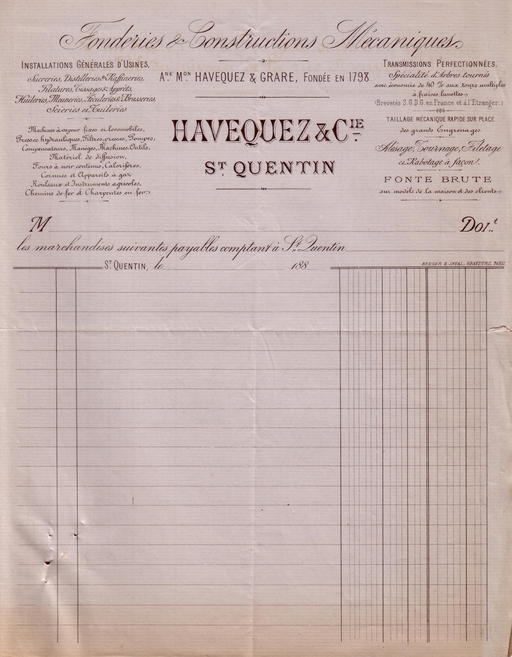 Fonderies & Constructions Mécaniques.
INSTALLATIONS GÉNÉRALES D'USINES,
Sucreries, Distilleries & Raffineries,
Filatures, Tissages & Apprêts,
Huileries, Minoteries, Féculeries & Brasseries
Scieries et Tuileries
Machines à vapeur fixes et locomobiles,
Presses hydrauliques, Filtres-presses, Pompes,
Compensateurs, Manèges, Machines-Outils,
Matériel de diffusion,
Fours à noir continus, Calorifères,
Cornues et Appareils à gaz
Rouleaux et Instruments agricoles,
Chemins de fer et Charpentes en fer
ANE MON HAVEQUEZ & GRARE, FONDÉE EN 1798
HAVEQUEZ & CIE
ST QUENTIN
TRANSMISSIONS PERFECTIONNÉES,
Spécialité d'Arbres tournés
avec économie de 40 % aux tours multiples
à fraises lunettes
(Brevetés S.G.D.G. en France et à l'Etranger.)
TAILLAGE MÉCANIQUE RAPIDE SUR PLACE
des grands Engrenages
Alésage, Tournage, Filetage
et Rabotage à façon.
FONTE BRUTE
sur modèles de la maison et des clients
M
Doit
les marchandises suivantes payables comptant à St Quentin
ST QUENTIN, le 188
PARIS